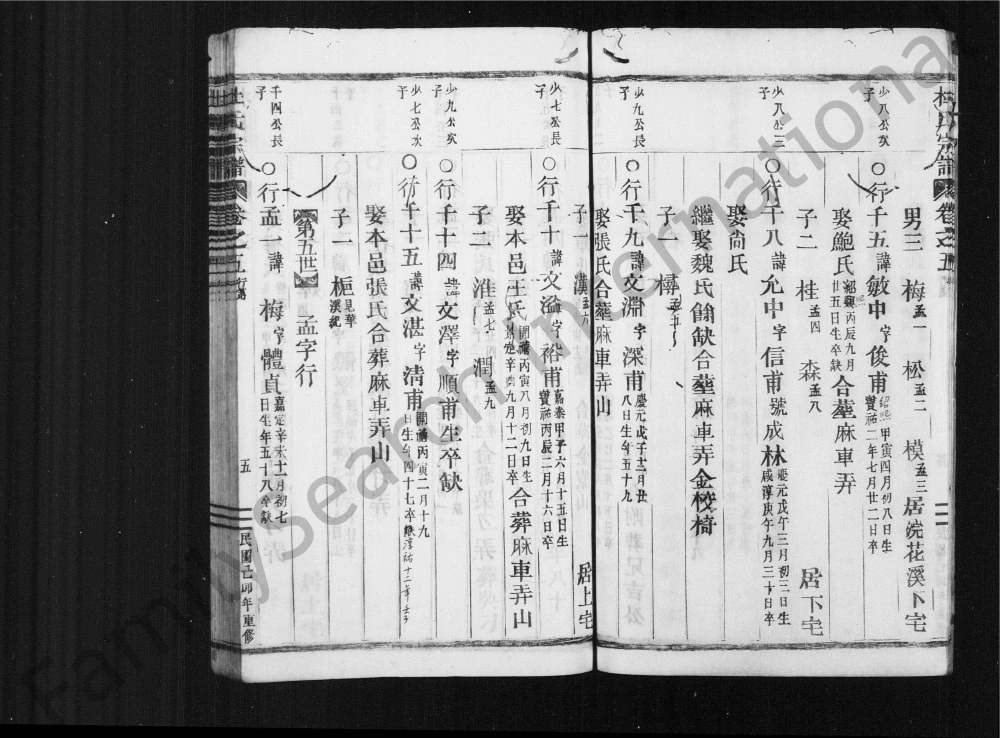 杜氏宗譜 卷之五
男三 梅 孟一 松 孟二 模 孟三 居浣花溪下宅
少八公次子
○行千五諱敏中字俊甫 紹熙甲寅四月初八日生 寶祐二年七月廿二日卒
娶鮑氏 紹熙丙辰九月廿五日生卒缺 合塟麻車弄
子二 桂 孟四 森 孟八 居下宅
少八公三子
○行千八諱允中字信甫號成林 慶元戊午三月初三日生 咸淳庚午九月三十日卒
娶尙氏
繼娶魏氏俱缺合塟麻車弄金校椅
子一
少九公長子
○行千九諱文淵字深甫 慶元戊子十二月丑八日生年五十九
娶張氏合塟麻車弄山
子 漢 孟六 居上宅
少七公長子
○行千十諱文溢字裕甫 嘉泰甲子六月十五日生 寶祐丙辰二月十六日卒
娶本邑王氏 開禧丙寅八月初九日生 嘉定辛 九月十二日卒 合葬麻車弄山
子二 淮 孟七 潤 孟九
少九公次子
○行千十四諱文澤字順甫生卒缺
少七公次子
○行千十五諱文湛字清甫 開禧丙寅二月十九日生年四十七卒缺 淳祐十二年壬子
娶本邑張氏合葬麻車弄山
子一 梔 見華溪紀
第五世 孟字行
千四公長子
○行孟一諱梅字體貞 嘉定辛未十二月初七日生年五十八卒缺
杜氏宗譜 卷之五 五 民國己卯年重修